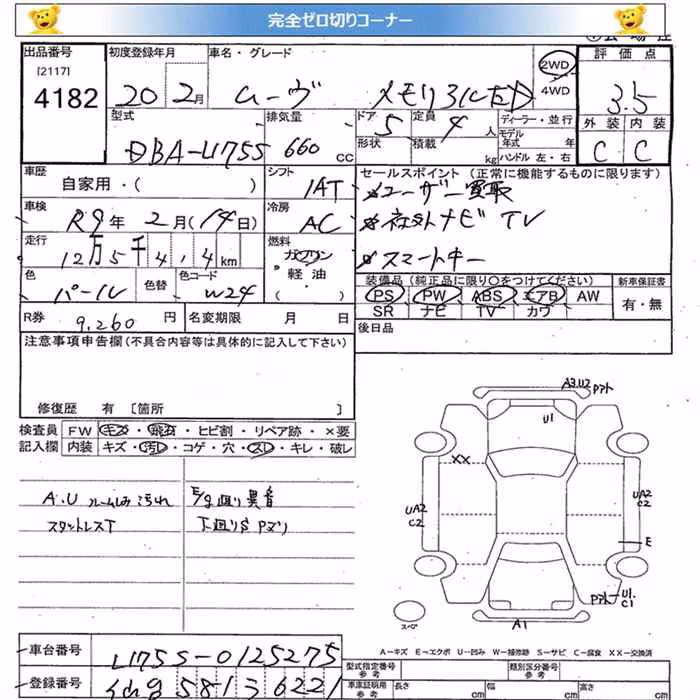 完全ゼロ切りコーナー
出品番号
[2117]
4182
初度登録年月
20 2月
車名・グレード
ムーヴ
2WD
4WD
評価点
3.5
外装 内装
C C
型式
DBA-L175S
排気量
660 CC
ドア 5
形状
定員 4 人
積載 kg
ディーラー・並行
モデル年式 年
ハンドル 左・右
車歴
自家用・( )
シフト
IAT
セールスポイント (正常に機能するものに限ります)
ユーザー買取
社外ナビ TV
スマートキー
車検
R9年 2月(14日)
冷房
AC
走行
12万5千4,4 km
燃料
ガソリン
軽油・
( )
色
パール
色替
色コード
W24
装備品(純正品に限り○をつけてください)
PS PW ABS エアB AW
SR ナビ TV カワ
新車保証書
有・無
R券 9,260 円
名変期限 月 日
後日品
注意事項申告欄(不具合内容等は具体的に記入して下さい)
修復歴 有 [箇所 ]
検査員 FW キズ・飛石・ヒビ割・リペア跡・×要
記入欄 内装 キズ・汚れ・コゲ・穴・スレ・キレ・破レ
A.U ルーム内汚れ
スタットレスT
E/g廻り異音
下廻りS Pヌリ
A3.U2 Pアト
U1
XX
UA2
C2
UA2
C2
E
Pアト U1.
C1
スペア
A1
A-キズ E-エクボ U-凹み W-補修跡 S-サビ C-腐食 XX-交換済
車台番号
L175S-0125275
登録番号
581 3 6221
型式指定番号
参考
類別区分番号
参考
車庫証明用
参考
長さ cm
幅 cm
高さ cm